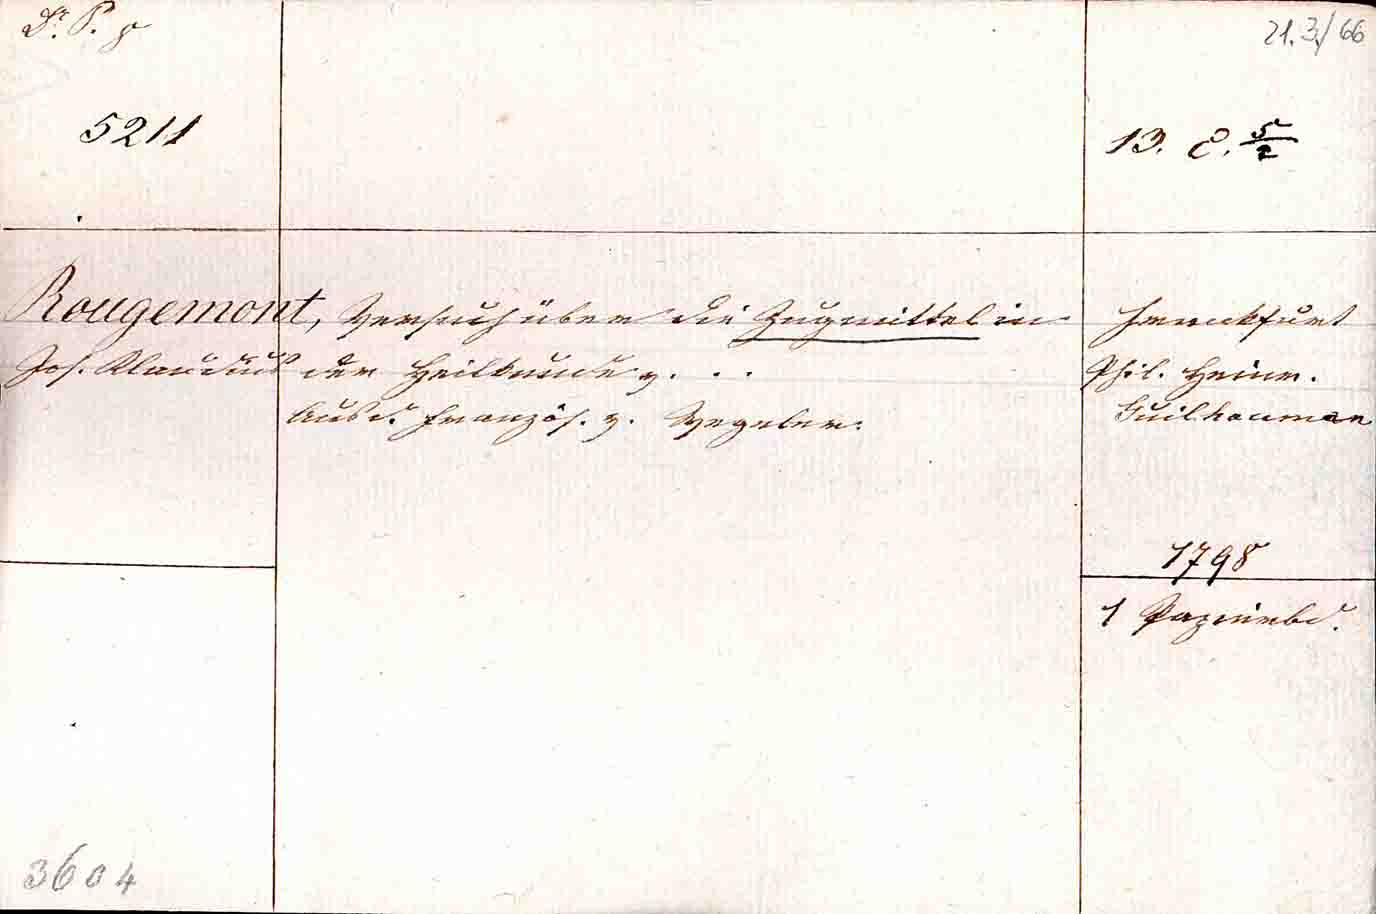 Dr. P. p
21.3./66
5211
13. C. 5/2
Rougemont, Versuch über die Zugmittel in
Jos. Klaudius der Heilkunde v. . .
Aus d. Französ. v. Wegeler.
Frankfurt
Phil. Heinr.
Guilhauman
1798
1 Papierbd.
3604